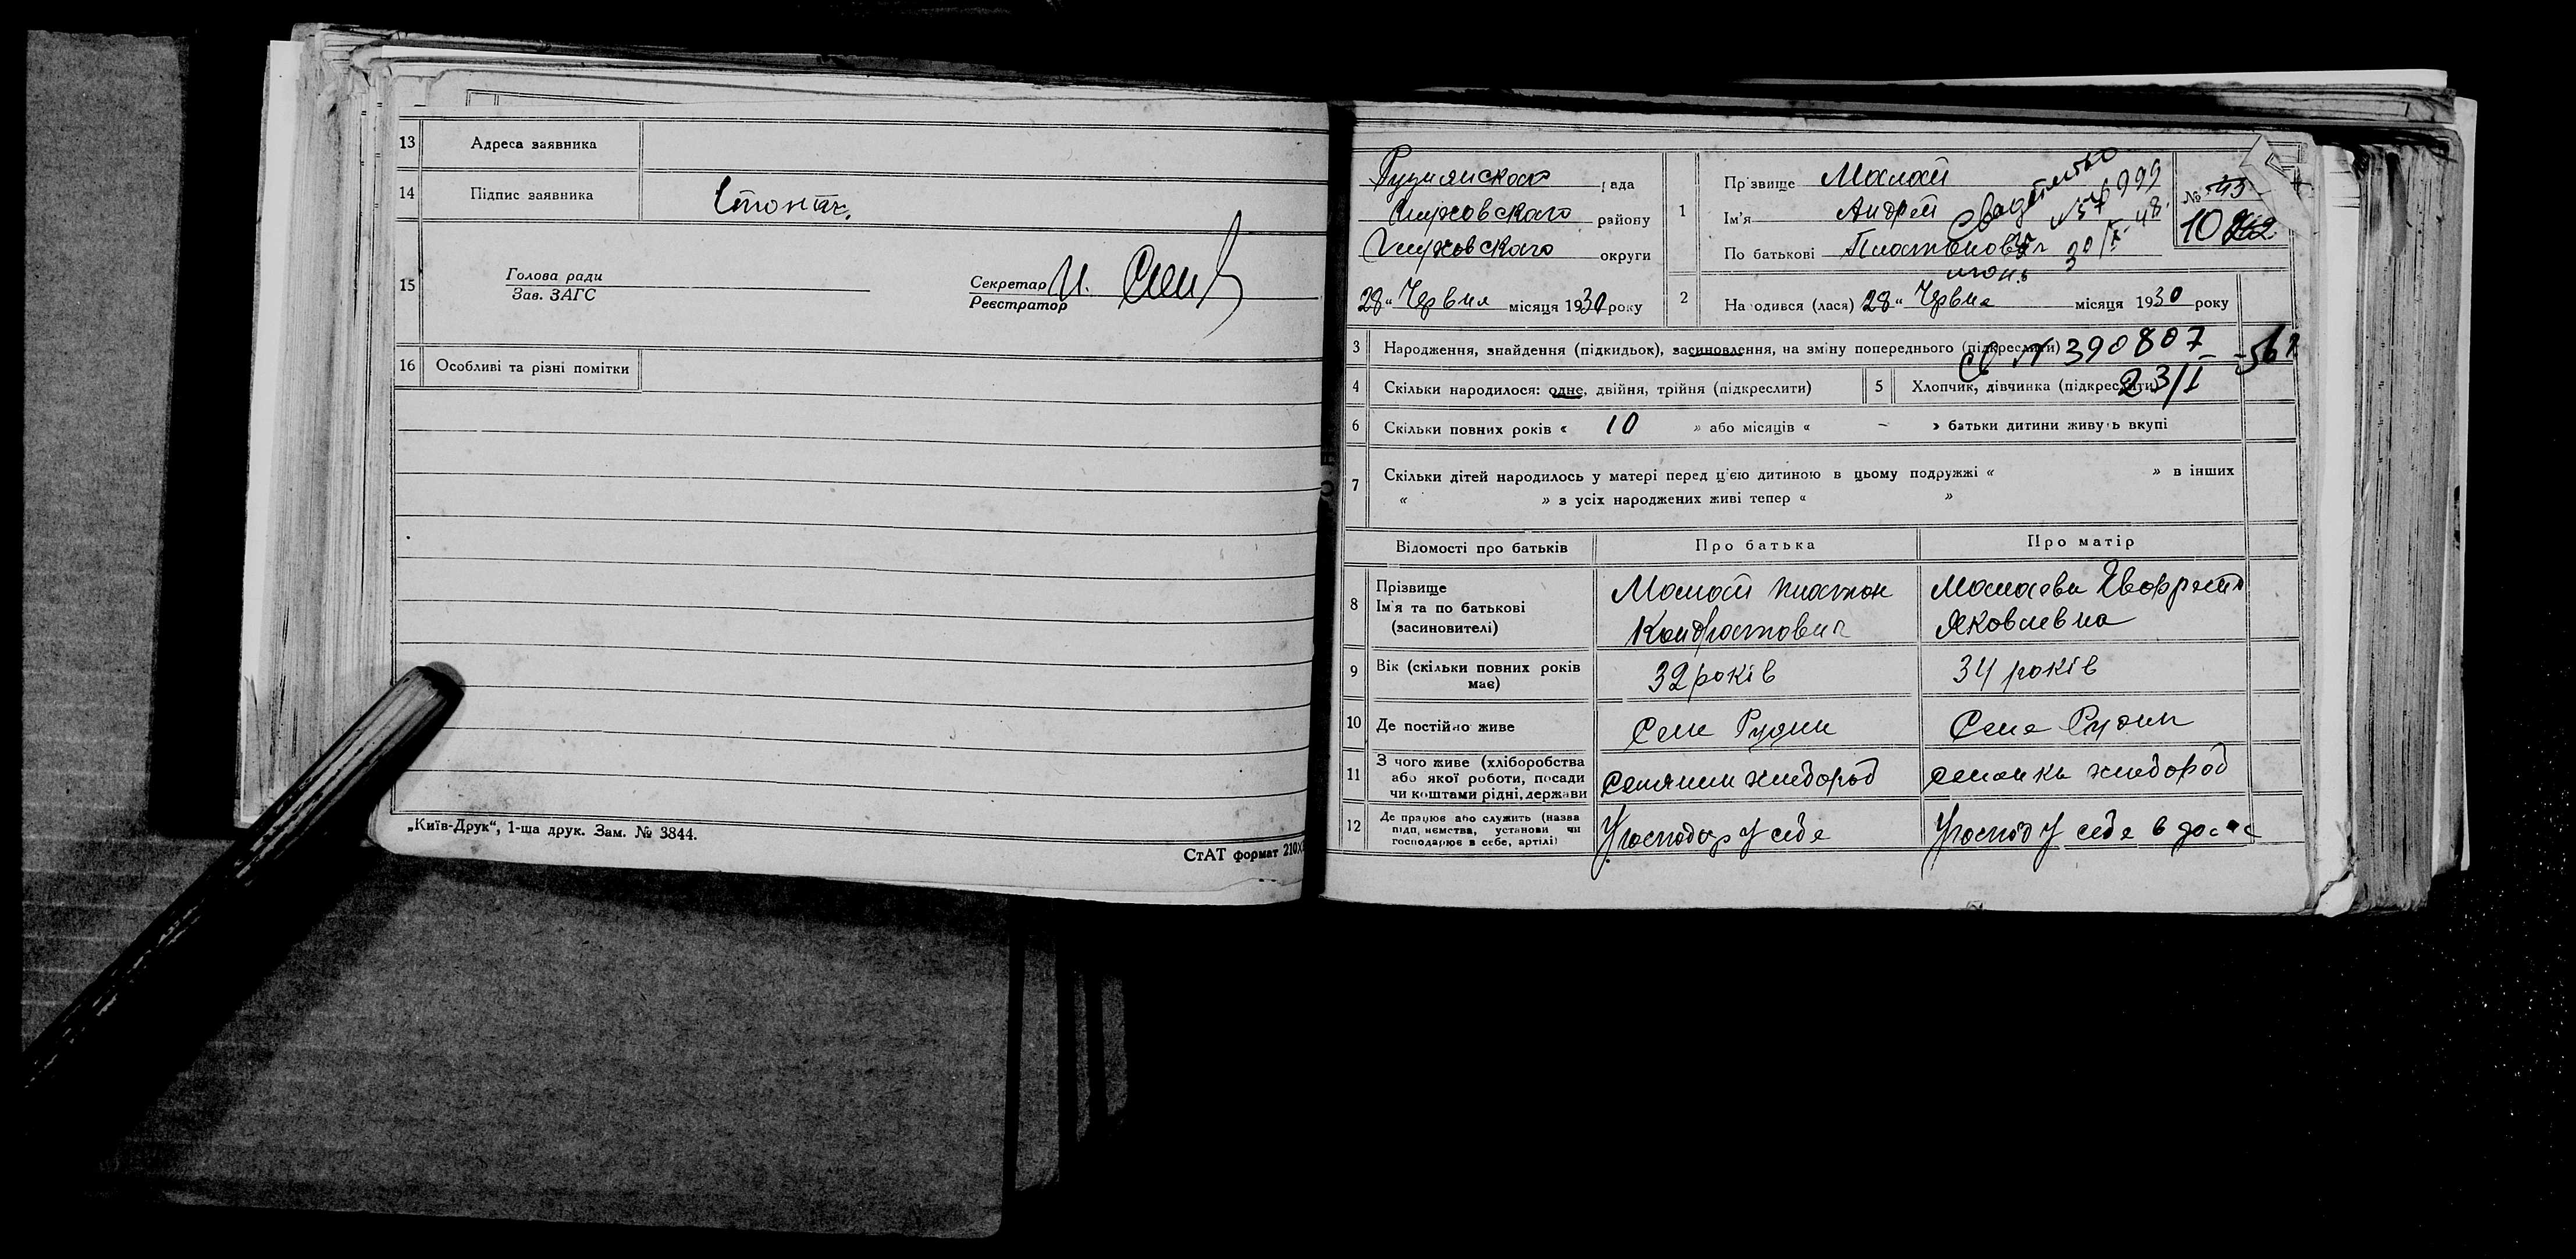 13 Адреса заявника
14 Підпис заявника
15 Голова ради
Зав. ЗАГС
Секретар И.
Реєстратор
16 Особливі та різні помітки
„Київ-Друк“, 1-ша друк. Зам. № 3844.
СтАТ формат 210X
рада
Глуховского району
Глуховского округи
28 „ Червня місяця 1930 року
1 Прізвище Малай
Ім'я Андрей
По батькові Платонович
№ 43
10
№ 999
30/X-48
2 Народився (лася) 28 „ Червня місяця 1930 року
3 Народження, знайдення (підкидьок), засиновлення, на зміну попереднього (підкреслити)
Св № 390807
23/I - 56 г
4 Скільки народилося: одне, двійня, трійня (підкреслити)
5 Хлопчик, дівчинка (підкреслити)
6 Скільки повних років « 10 » або місяців « – » батьки дитини живуть вкупі
7 Скільки дітей народилось у матері перед цією дитиною в цьому подружжі « » в інших
« » з усіх народжених живі тепер « »
Відомості про батьків Про батька Про матір
8 Прізвище
Ім'я та по батькові
(засиновителі)
Малай Платон
Кондратович
Малаева
Яковлевна
9 Вік (скільки повних років має) 32 років 34 років
10 Де постійно живе Село Рудни Село Рудни
11 З чого живе (хліборобства
або якої роботи, посади
чи коштами рідні, держави
Селянин хлебород селянка хлебород
12 Де працює або служить (назва
підприємства, установи чи
господарює в себе, артілі)
У господар У себе У господ У себе в